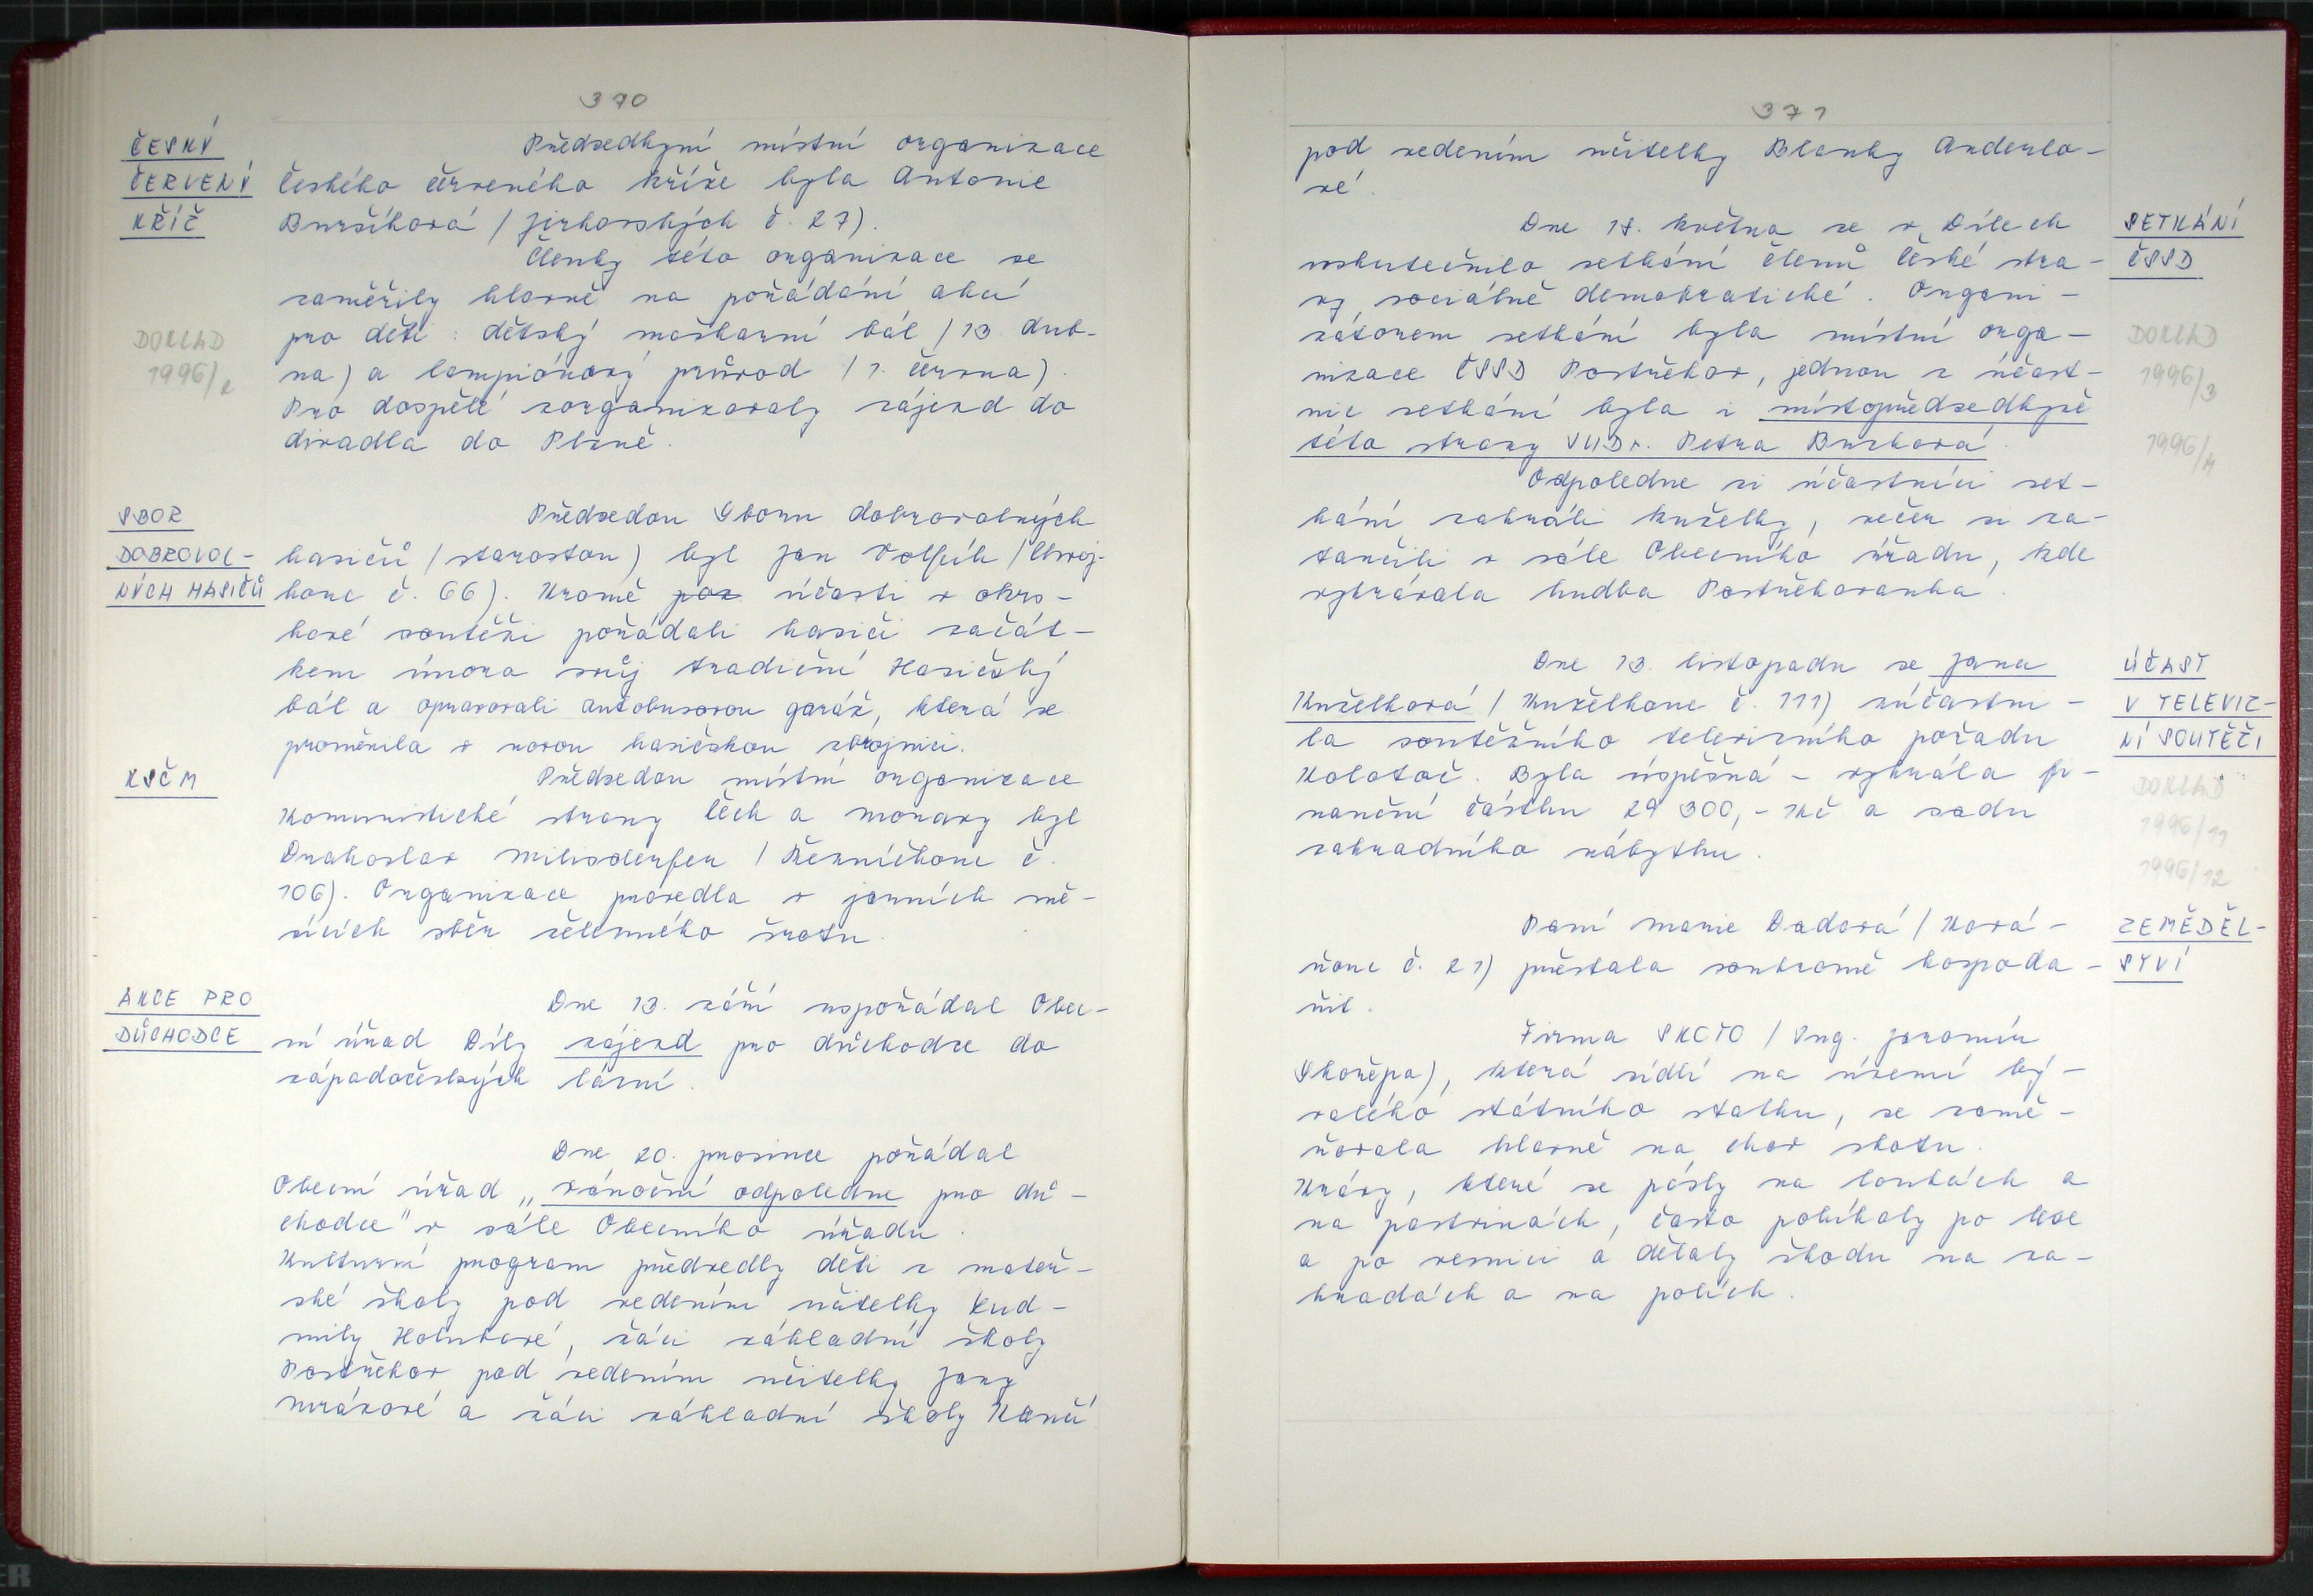 370
ČESKÝ
ČERVENÝ
KŘÍŽ
Předsedkyní místní organizace
Českého červeného kříže byla Antonie
Buršíková / Jirkovských č. 27).
Členky této organizace se
zaměřily hlavně na pořádání akcí
pro děti: dětský maškarní bál / 13. dub-
na) a lampiónový průvod / 1. června).
Pro dospělé zorganizovaly zájezd do
divadla do Plzně.
DOKLAD
1996/2
SBOR
DOBROVOL-
NÝCH HASIČŮ
Předsedou Sboru dobrovolných
hasičů / starostou) byl Jan Volfík /
č. 66). Kromě poz účasti v okrs-
kové soutěži pořádali hasiči začát-
kem února svůj tradiční Hasičský
bál a opravovali autobusovou garáž, která se
proměnila v novou hasičskou zbrojnici.
KSČM
Předsedou místní organizace
Komunistické strany Čech a Moravy byl
Drahoslav / Řezníčkovic č.
106). Organizace provedla v jarních mě-
sících sběr železného šrotu.
AKCE PRO
DŮCHODCE
Dne 13. září uspořádal Obec-
ní úřad Díly zájezd pro důchodce do
západočeských lázní.
Dne 20. prosince pořádal
Obecní úřad „vánoční odpoledne pro dů-
chodce" v sále Obecního úřadu.
Kulturní program předvedly děti z mateř-
ské školy pod vedením učitelky Lud-
mily Holubové, žáci základní školy
Postřekov pod vedením učitelky Jany
Mrázové a žáci základní školy Klenčí
371
pod vedením učitelky Blanky Anderlo-
vé.
Dne 18. května se v Dílech
uskutečnilo setkání členů České stra-
ny sociálně demokratické. Organi-
zátorem setkání byla místní orga-
nizace ČSSD Postřekov, jednou z účast-
nic setkání byla i místopředsedkyně
této strany JUDr. Petra Buzková.
Odpoledne si účastníci set-
kání zahráli kuželky, večer si za-
tančili v sále Obecního úřadu, kde
vyhrávala hudba Postřekovanka.
SETKÁNÍ
ČSSD
DOKLAD
1996/3
1996/4
Dne 13. listopadu se Jana
Kuželková / Kuželkovic č. 111) zúčastni-
la soutěžního televizního pořadu
Kolotoč. Byla úspěšná - vyhrála fi-
nanční částku 29 300,- Kč a sadu
zahradního nábytku.
ÚČAST
V TELEVIZ-
NÍ SOUTĚŽI
DOKLAD
1996/11
1996/12
Paní Marie Dadová / Ková-
řovic č. 21) přestala soukromě hospoda-
řit.
Firma SKOTO / Ing. Jaromír
Skořepa), která sídlí na území bý-
valého státního statku, se zamě-
řovala hlavně na chov skotu.
Krávy, které se pásly na loukách a
na pastvinách, často pobíhaly po lese
a po vesnici a dělaly škodu na za-
hradách a na polích.
ZEMĚDĚL-
STVÍ